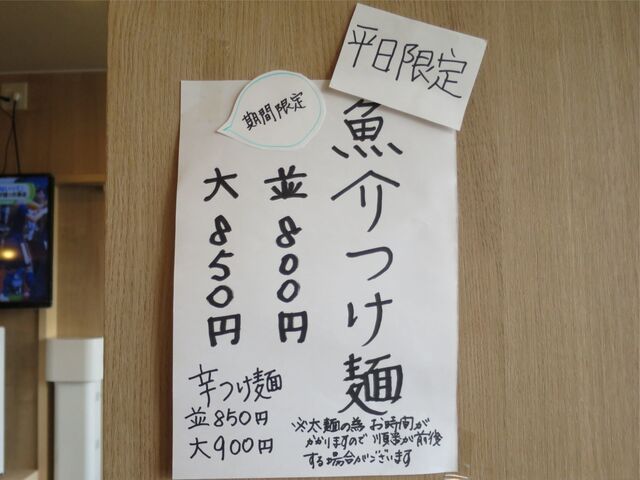 平日限定
期間限定
魚介つけ麺
並800円
大850円
辛つけ麺
並850円
大900円
※太麺の為お時間が
かかりますので順番が前後
する場合がございます